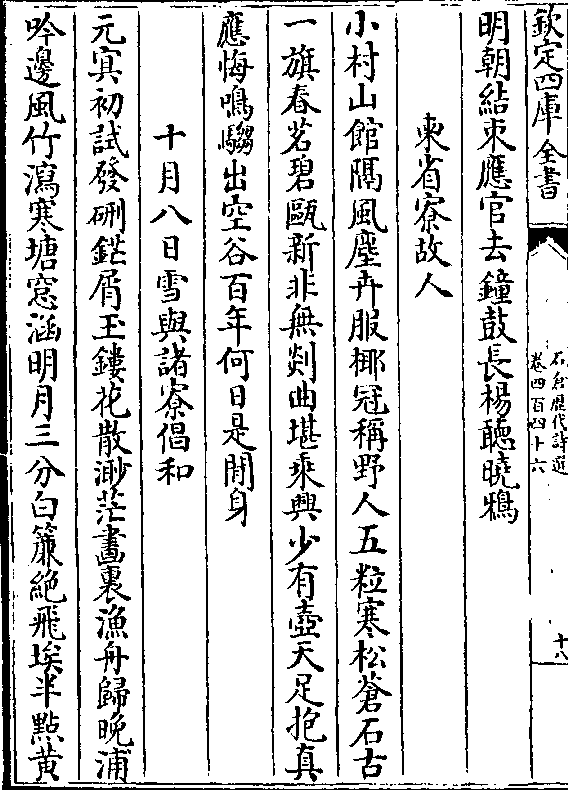 欽定四庫全書
石倉歷代詩選
卷四百四十六
十八
明朝結束應官去鐘鼓長楊聽曉鴉
柬省寮故人
小村山館隔風塵卉服椰冠稱野人五粒寒松蒼石古
一旗春茗碧甌新非無剡曲堪乘興少有壺天足抱真
應悔鳴騶出空谷百年何日是閒身
十月八日雪與諸寮倡和
元冥初試發硎鋩屑玉鏤花散渺茫畫裏漁舟歸晚浦
吟邊風竹瀉寒塘窓涵明月三分白簾絶飛埃半點黄